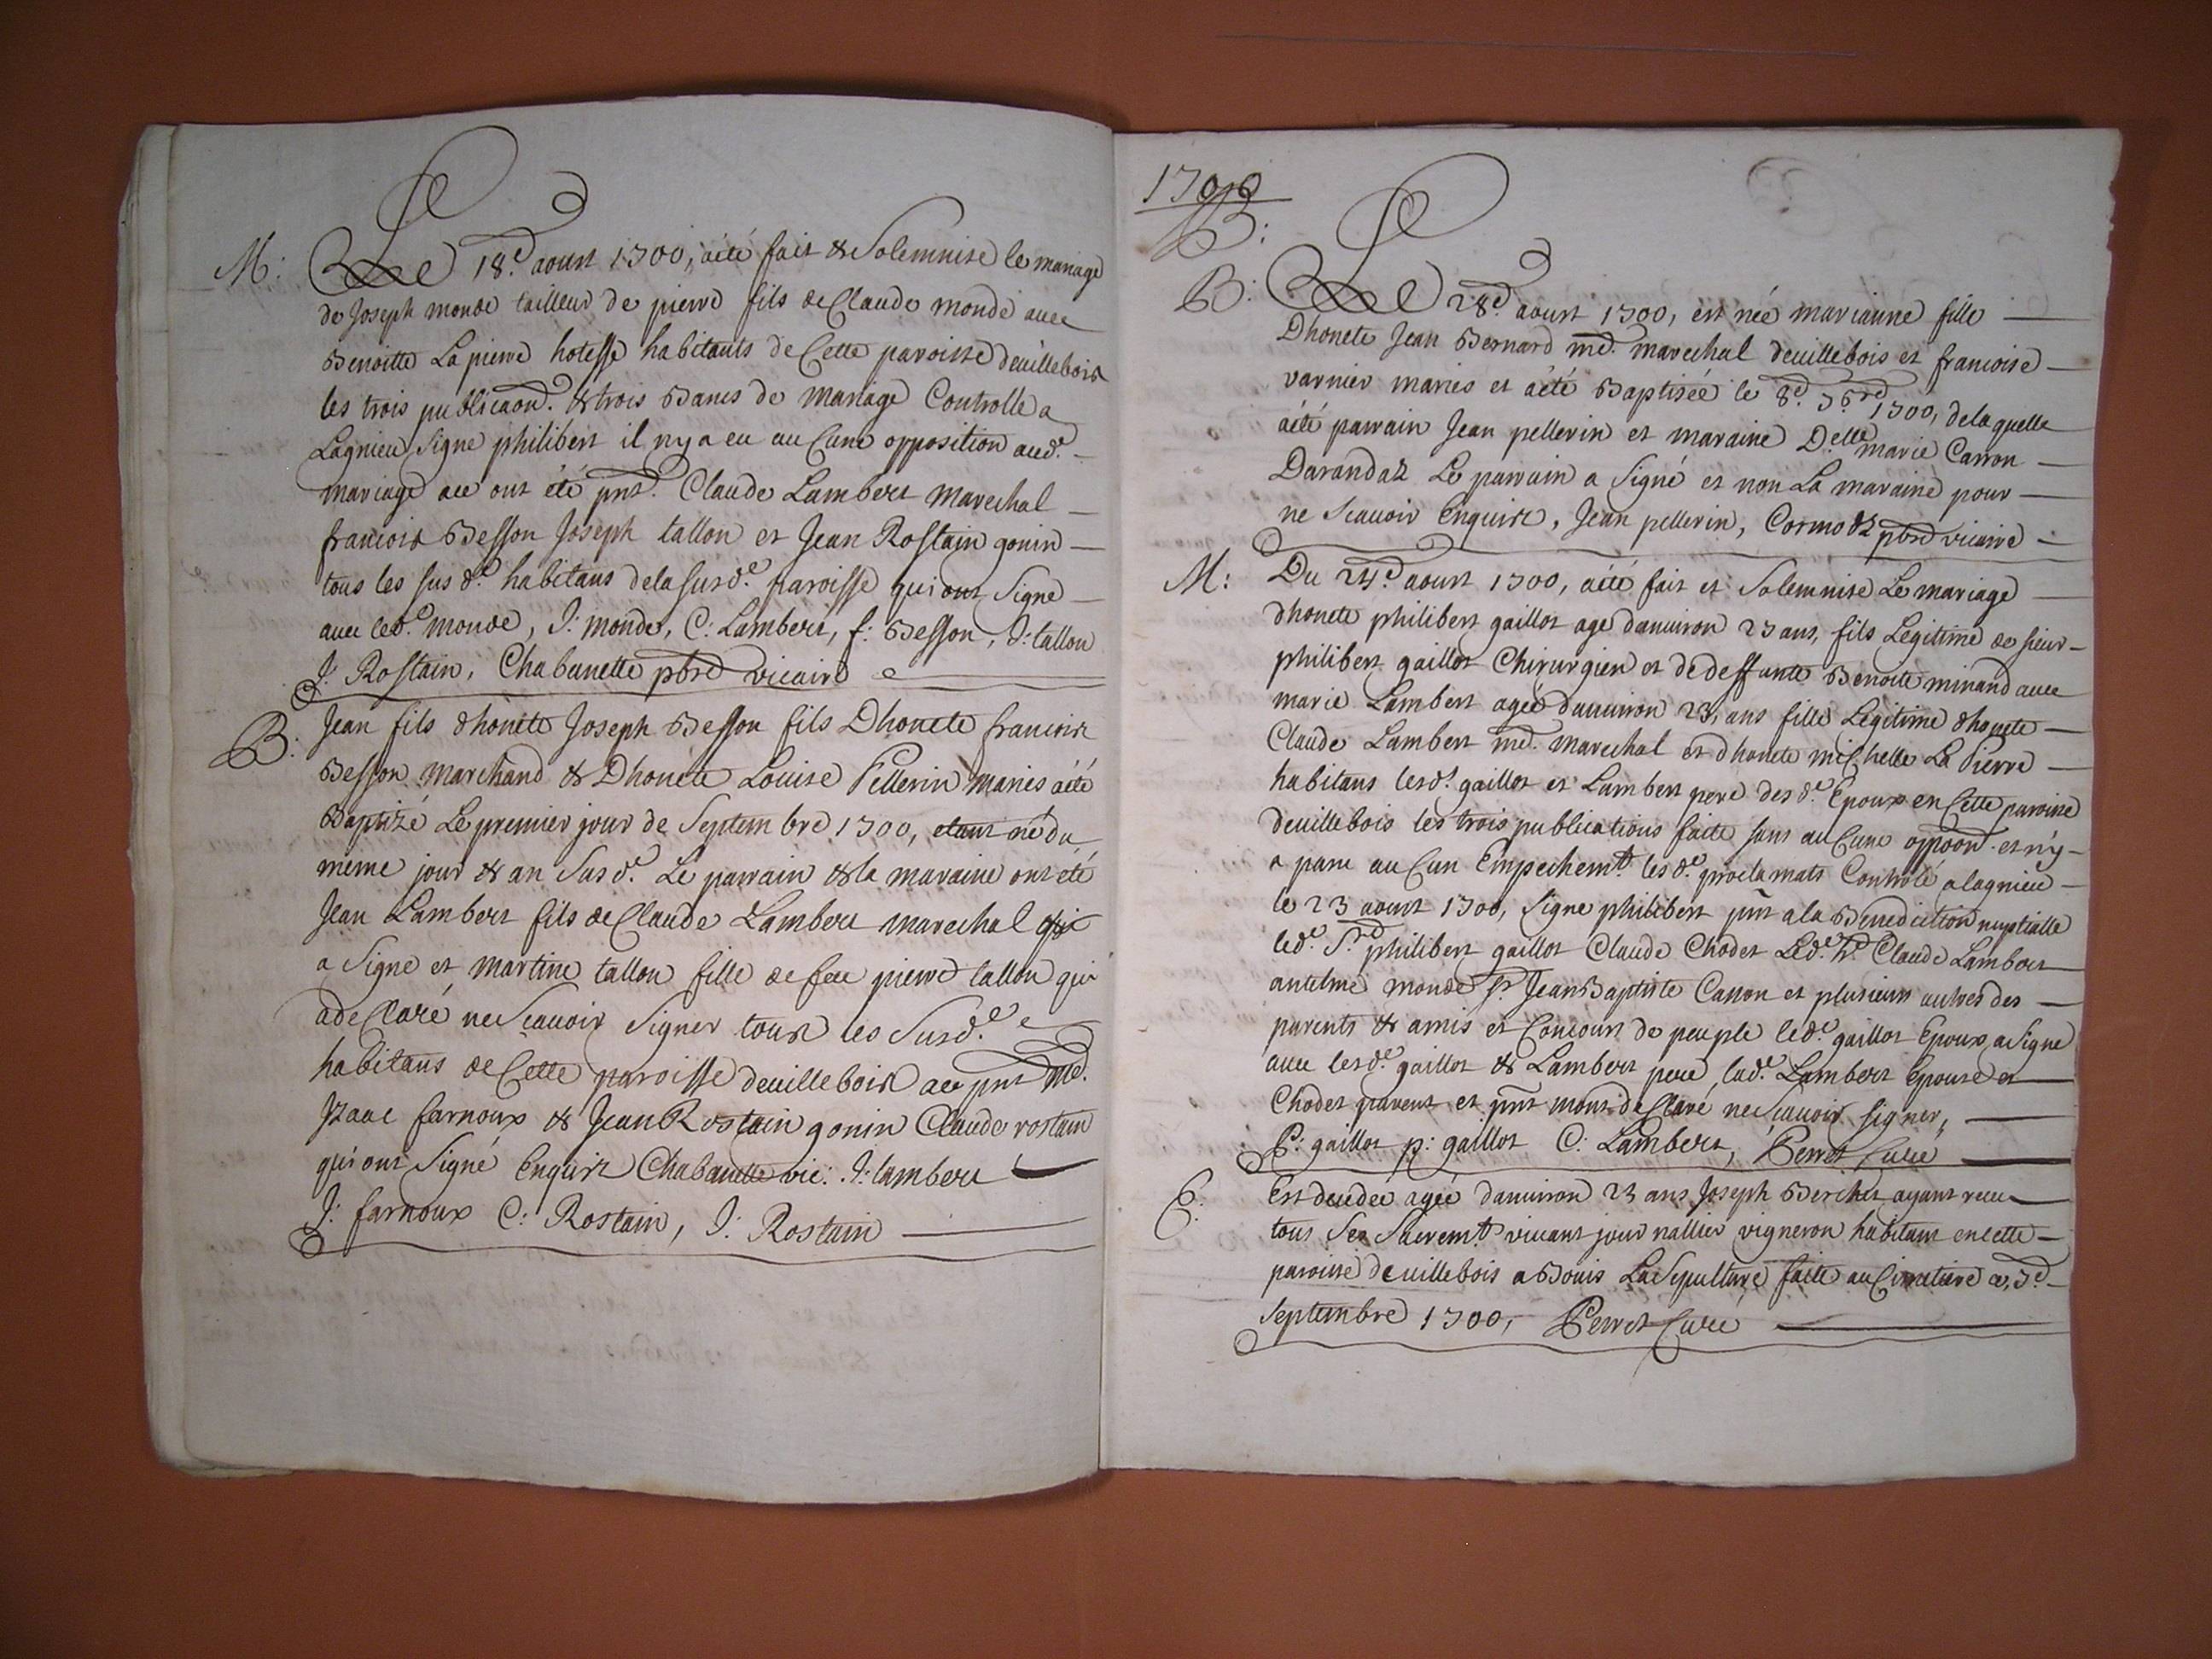 M: Le 18.e aoust 1700, a été fait & Solemnise le mariage
de Joseph monde tailleur de pierre fils de Claude monde avec
Benoitte La pierre hotesse habitants de Cette paroisse devillebois
les trois publicaon.s & trois Bancs de mariage Controlle a
Lagnieu Signe philibert il ny a eu auCune opposition aud.
mariage ace ont été pnt. Claude Lambert marechal
francois Besson Joseph tallon et Jean Rostain gonin
tous les sus d.e habitans dela susd.e paroisse qui ont Signe
avec led.e monde, J: monde, C: Lambert, f: Besson, J: tallon
J: Rostain, Chabanette pbre vicaire
B: Jean fils dhonete Joseph Besson fils Dhonete francois
Besson marchand & Dhonete Louise Pellerin maries a été
Baptizé Le premier jour de Septembre 1700, etant né du
meme jour & an Sus d.e Le parrain & la maraine ont eté
Jean Lambert fils de Claude Lambert marechal qui
a Signe et martine tallon fille de feu pierre tallon qui
adeClaré ne Scavoir Signer tous les Susd.e
habitans de Cette paroisse devillebois ace pnt Md.
Izaac farnoux & Jean Rostain gonin Claude rostain
qui ont Signé Enquis Chabanette vic: J: lambert
J: farnoux C: Rostain, J: Rostain
1700
B:
B: Le 28.e aoust 1700, est née marianne fille
Dhonete Jean Bernard md. marechal devillebois et francoise
varnier maries et a été Baptisée le 8.e 7bre 1700, delaquelle
a été parrain Jean pellerin et maraine D.elle marie Carron
Darandaz Le parrain a Signé et non La maraine pour
ne Scavoir Enquise, Jean pellerin, Cormodz pbre vicaire
M: Du 24.e aoust 1700, a été fait et Solemnise Le mariage
dhonete philibert gaillot age danviron 25 ans, fils Legitime de sieur
philibert gaillot Chirurgien et de deffunte Benoite minand avec
marie Lambert agée danviron 23, ans fille Legitime dhonete
Claude Lambert md. marechal et dhonete miChelle La Pierre
habitans lesd.t gaillot et Lambert pere des d.e Epoux en Cette paroisse
devillebois les trois publications faite sans auCune oppoon. et ny
a paru auCun Empechem.t les d.e proclamats Controlé a lagnieu
le 23 aoust 1700, Signe philibert pnt ala Benediction nuptialle
led.e S.r philibert gaillot Claude Chodet Led.e h.e Claude Lambert
antelme monde S.r Jean Baptiste Carron et plusieurs autres des
parents & amis et Concours de peuple led.e gaillot Epoux a Signe
avec lesd.e gaillot & Lambert pere, lad.e Lambert Epouse et
Chodet parent et pnt mont deClaré ne Scavoir signer,
P: gaillot p: gaillot C: Lambert, Perret Curé
E: Est decedée agée danviron 23 ans Joseph Berchet ayant receu
tous Ses Sacrem.t vivant journallier vigneron habitant en cette
paroisse devillebois a Bouis La Sepulture faite au Cimetiere ce, 3.e
Septembre 1700, Perret Curé